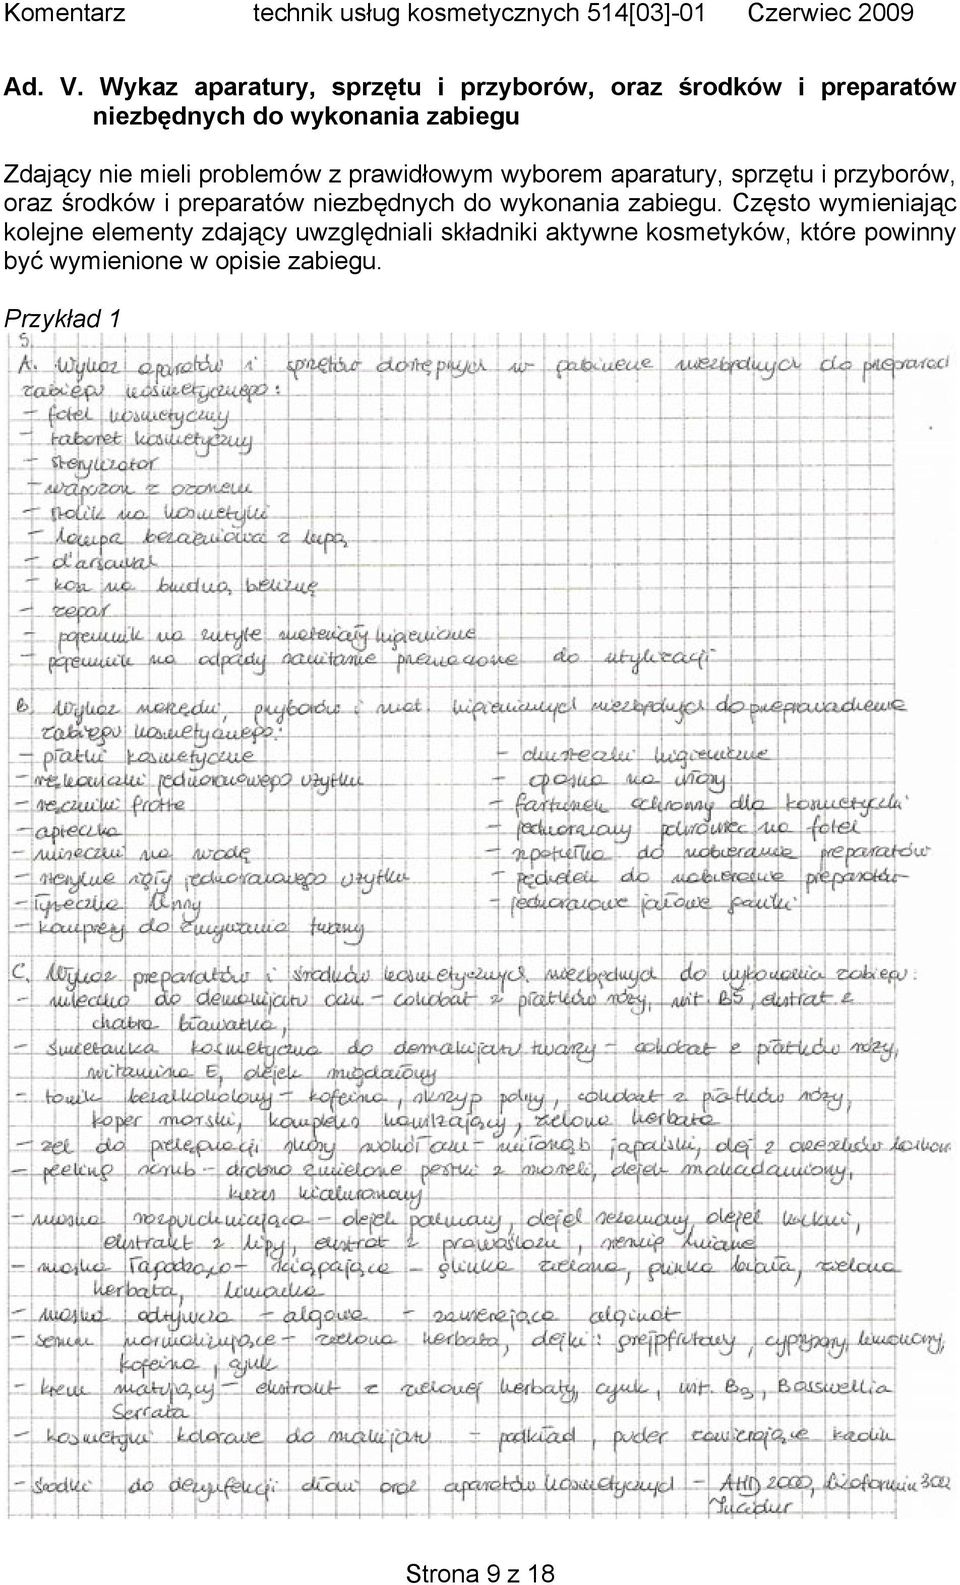 Komentarz technik usług kosmetycznych 514[03]-01 Czerwiec 2009
Ad. V. Wykaz aparatury, sprzętu i przyborów, oraz środków i preparatów
niezbędnych do wykonania zabiegu
Zdający nie mieli problemów z prawidłowym wyborem aparatury, sprzętu i przyborów,
oraz środków i preparatów niezbędnych do wykonania zabiegu. Często wymieniając
kolejne elementy zdający uwzględniali składniki aktywne kosmetyków, które powinny
być wymienione w opisie zabiegu.
Przykład 1
5.
A. Wykaz aparatów i sprzętów dostępnych w gabinecie niezbędnych do
zabiegu kosmetycznego:
- fotel kosmetyczny
- taboret kosmetyczny
- sterylizator
- wapozon z ozonem
- stolik na kosmetyki
- lampa bezcieniowa z lupą
- d'arsonval
- kosz na brudną bieliznę
- zegar
- pojemnik na zużyte materiały higieniczne
- pojemnik na odpady sanitarne przeznaczone do utylizacji
B. Wykaz narzędzi, przyborów i mat. higienicznych niezbędnych do przeprowadzenia
zabiegu kosmetycznego:
- płatki kosmetyczne - chusteczki higieniczne
- rękawiczki jednorazowego użytku - opaska na włosy
- ręczniki frotte - fartuszek ochronny dla kosmetyczki
- apteczka - jednorazowy pokrowiec na fotel
- miseczki na wodę - szpatułka do nabierania preparatów
- sterylne igły jednorazowego użytku - pędzelek do nabierania preparatów
- łyżeczka Unny - jednorazowe jałowe gaziki
- kompresy do zmywania twarzy
C. Wykaz preparatów i środków kosmetycznych niezbędnych do wykonania zabiegu:
- mleczko do demakijażu oczu - hydrolat z płatków róży, wit. B5, ekstrat z
chabra bławatka,
- śmietanka kosmetyczna do demakijażu twarzy - hydrolat z płatków róży,
witamina E, olejek migdałowy
- tonik bezalkoholowy - kofeina, skrzyp polny, hydrolat z płatków róży,
koper morski, kompleks nawilżający, zielona herbata
- żel do pielęgnacji skóry wokół oczu - miłorząb japoński, olej z orzeszków
- peeling scrub - drobno zmielone pestki z moreli, olejek makadamiowy,
kwas hialuronowy
- maska rozpulchniająca - olejek palmowy, olejek sezamowy, olejek kokosowy,
ekstrakt z lipy, ekstrat z prawoślazu, siemię lniane
- maska łagodząco - ściągająca - glinka zielona, glinka biała, zielona
herbata,
- maska odżywcza - algowa - zawierająca alginat
- serum normalizujące - zielona herbata, olejki: grejpfrutowy, cyprysowy, lemonowy,
kofeina, cynk
- krem matujący - ekstrakt z zielonej herbaty, cynk, wit. B3, Bosswellia
Serrata
- kosmetyki kolorowe do makijażu - podkład, puder zawierające kaolin
- środki do dezynfekcji dłoni oraz aparatów kosmetycznych - AHD 2000,
Incidur
Strona 9 z 18